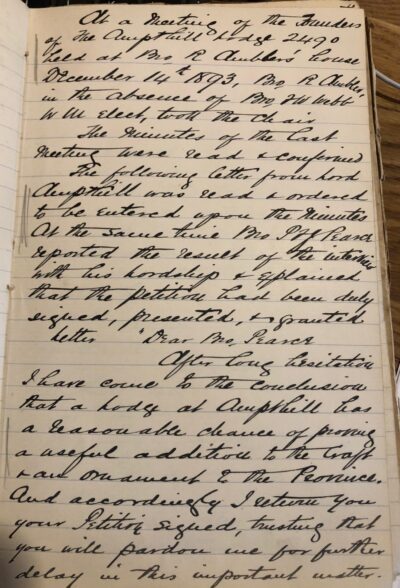 At a Meeting of the Founders
of The Ampthill Lodge 2490
held at Bro R Ambler's house
December 14th 1893, Bro, R Ambler,
in the absence of Bro, Webb
W M Elect, took the Chair
The Minutes of the Last
Meeting were read & confirmed
The following letter from Lord
Ampthill was read & ordered
to be entered upon the Minutes
At the same time Bro Pearce
reported the result of the interview
with his Lordship & explained
that the Petition had been duly
signed, presented, & granted
Letter "Dear Bro, Pearce
After long hesitation
I have come to the conclusion
that a Lodge at Ampthill has
a reasonable chance of proving
a useful addition to the Craft
& an ornament to the Province.
And accordingly I return you
your Petition signed, trusting that
you will pardon me for further
delay in this important matter.